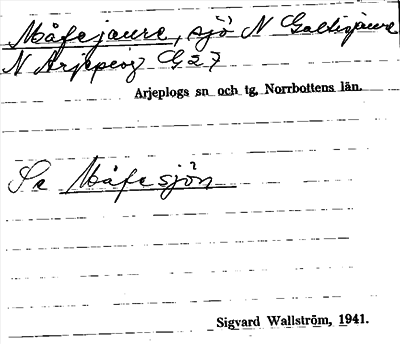 Måfejaure, sjö N Galtisjaure
N Arjeplog G 27
Arjeplogs sn och tg, Norrbottens län.
Se Måfesjön
Sigvard Wallström, 1941.